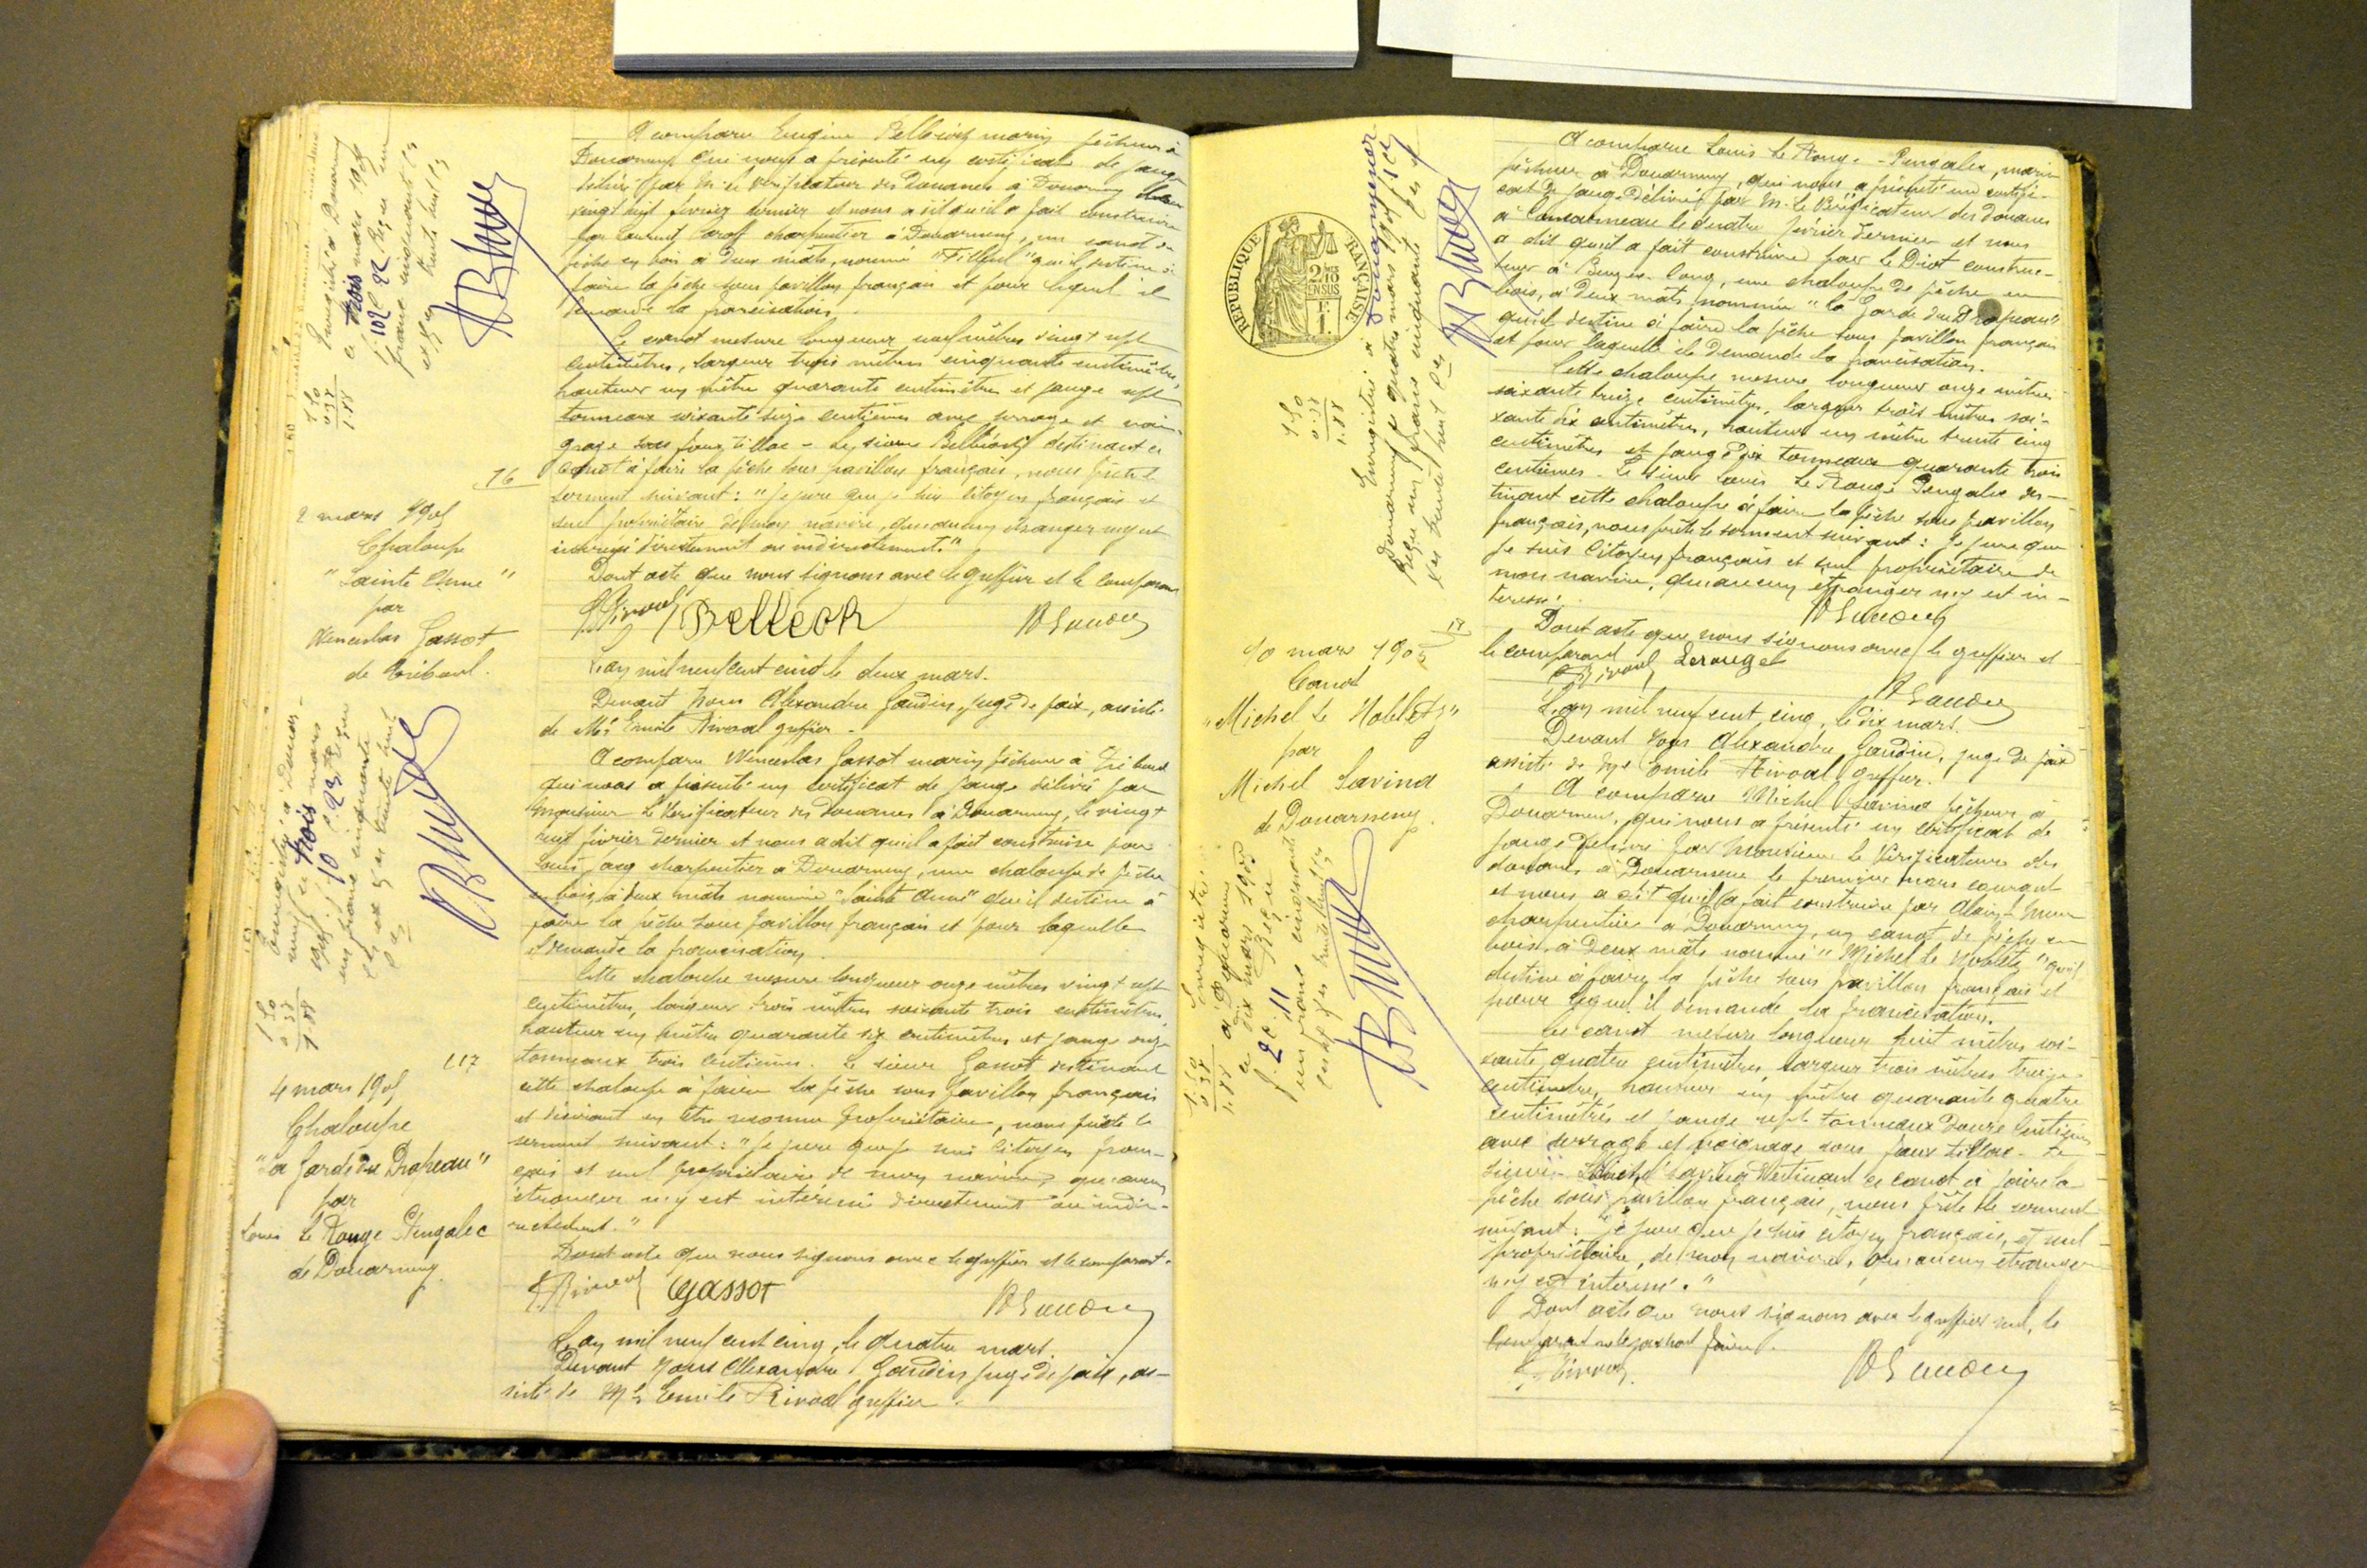 A comparu Eugène Belléoch marin pêcheur à
Douarnenez qui nous a présenté un certificat de jauge
délivré par M. le Vérificateur des Douanes à Douarnenez
vingt huit février dernier et nous a dit qu'il a fait construire
par Laurent charpentier à Douarnenez, un canot de
pêche en bois à deux mâts, nommé "Filleul" qu'il destine à
faire la pêche sous pavillon français et pour lequel il
demande la francisation.
Ce canot mesure longueur neuf mètres vingt sept
centimètres, largeur trois mètres cinquante centimètres,
hauteur un mètre quarante centimètres et jauge sept
tonneaux soixante seize centièmes avec serrage et vai-
grage sous faux tillac - Le sieur Belléoch destinant ce
canot à faire la pêche sous pavillon français, nous prête le
serment suivant : "Je jure que je suis citoyen français et
seul propriétaire de mon navire, qu'aucun étranger n'y est
intéressé directement ou indirectement."
Dont acte que nous signons avec le greffier et le comparant
E. Rivoal Bellech A Gaudin
L'an mil neuf cent cinq le deux mars.
Devant Nous Alexandre Gaudin, juge de paix, assisté
de Me Emile Rivoal greffier -
A comparu Wenceslas Gassot marin pêcheur à Tréboul
qui nous a présenté un certificat de jauge délivré par
Monsieur Le Vérificateur des Douanes à Douarnenez, le vingt
huit février dernier et nous a dit qu'il a fait construire par
Louis charpentier à Douarnenez, une chaloupe de pêche
en bois, à deux mâts nommée "Sainte Anne" qu'il destine à
faire la pêche sous pavillon français et pour laquelle
il demande la francisation.
Cette chaloupe mesure longueur onze mètres vingt sept
centimètres, largeur trois mètres soixante trois centimètres,
hauteur un mètre quarante six centimètres et jauge onze
tonneaux trois centièmes. Le sieur Gassot destinant
cette chaloupe à faire la pêche sous pavillon français
et désirant en être reconnu propriétaire, nous prête le
serment suivant : "Je jure que je suis citoyen fran-
çais et seul propriétaire de mon navire, qu'aucun
étranger n'y est intéressé directement ou indi-
rectement."
Dont acte que nous signons avec le greffier et le comparant.
E. Rivoal Gassot A Gaudin
L'an mil neuf cent cinq, le quatre mars.
Devant Nous Alexandre Gaudin juge de paix, as-
sisté de Me Emile Rivoal greffier.
Enregistré à Douarnenez
ce trois mars 1905
f. 10 c. 22 Reçu un
franc cinquante
et trente huit ces
1.50
0.37
1.88
16
2 mars 1905
Chaloupe
"Sainte Anne"
par
Wenceslas Gassot
de Tréboul.
Enregistré à Douar-
nenez ce trois mars
1905 f. 10 c. 23 Reçu
un franc cinquante
1.50
0.37
1.88
17
4 mars 1905
Chaloupe
"La Garde du Drapeau"
par
Louis Le Rouge Pengalec
de Douarnenez
RÉPUBLIQUE FRANÇAISE
2 DES EN SUS
1 F.
A comparu Louis Le Rouge - Pengalec, marin
pêcheur à Douarnenez, qui nous a présenté un certifi-
cat de jauge délivré par M. le Vérificateur des Douanes
à Concarneau le quatre février dernier et nous
a dit qu'il a fait construire par Le Diot construc-
teur à une chaloupe de pêche en
bois, à deux mâts nommée "la Garde du Drapeau"
qu'il destine à faire la pêche sous pavillon français
et pour laquelle il demande la francisation.
Cette chaloupe mesure longueur onze mètres
soixante treize centimètres, largeur trois mètres soi-
xante dix centimètres, hauteur un mètre trente cinq
centimètres et jauge dix tonneaux quarante trois
centièmes - Le sieur Louis Le Rouge Pengalec des-
tinant cette chaloupe à faire la pêche sous pavillon
français, nous prête le serment suivant : Je jure que
je suis citoyen français et seul propriétaire de
mon navire, qu'aucun étranger n'y est in-
téressé. A Gaudin
Dont acte que nous signons avec le greffier et
le comparant
E. Rivoal Lerouge L A Gaudin
L'an mil neuf cent cinq, le dix mars.
Devant Nous Alexandre Gaudin, juge de paix
assisté de Me Emile Rivoal greffier.
A comparu Michel Savina pêcheur à
Douarnenez, qui nous a présenté un certificat de
jauge délivré par Monsieur le Vérificateur des
douanes à Douarnenez le premier mars courant
et nous a dit qu'il a fait construire par Alain
charpentier à Douarnenez, un canot de pêche en
bois, à deux mâts nommé "Michel Le Nobletz" qu'il
destine à faire la pêche sous pavillon français et
pour lequel il demande la francisation.
Ce canot mesure longueur huit mètres soi-
xante quatre centimètres, largeur trois mètres treize
centimètres, hauteur un mètre quarante quatre
centimètres et jauge sept tonneaux douze centièmes
avec serrage et vaigrage sous faux tillac - Le
sieur Michel Savina destinant ce canot à faire la
pêche sous pavillon français, nous prête le serment
suivant : "Je jure que je suis citoyen français, et seul
propriétaire, de mon navire, qu'aucun étranger
n'y est intéressé."
Dont acte que nous signons avec le greffier seul, le
comparant ne le sachant faire.
E. Rivoal. A Gaudin
Enregistré à Douarnenez
Reçu un franc cinquante
1.50
0.38
1.88
18
10 mars 1905
Canot
"Michel Le Nobletz"
par
Michel Savina
de Douarnenez.
Enregistré
à Douarnenez
ce dix mars 1905
f. 2 c. 11 Reçu
un franc cinquante
1.50
0.38
1.88